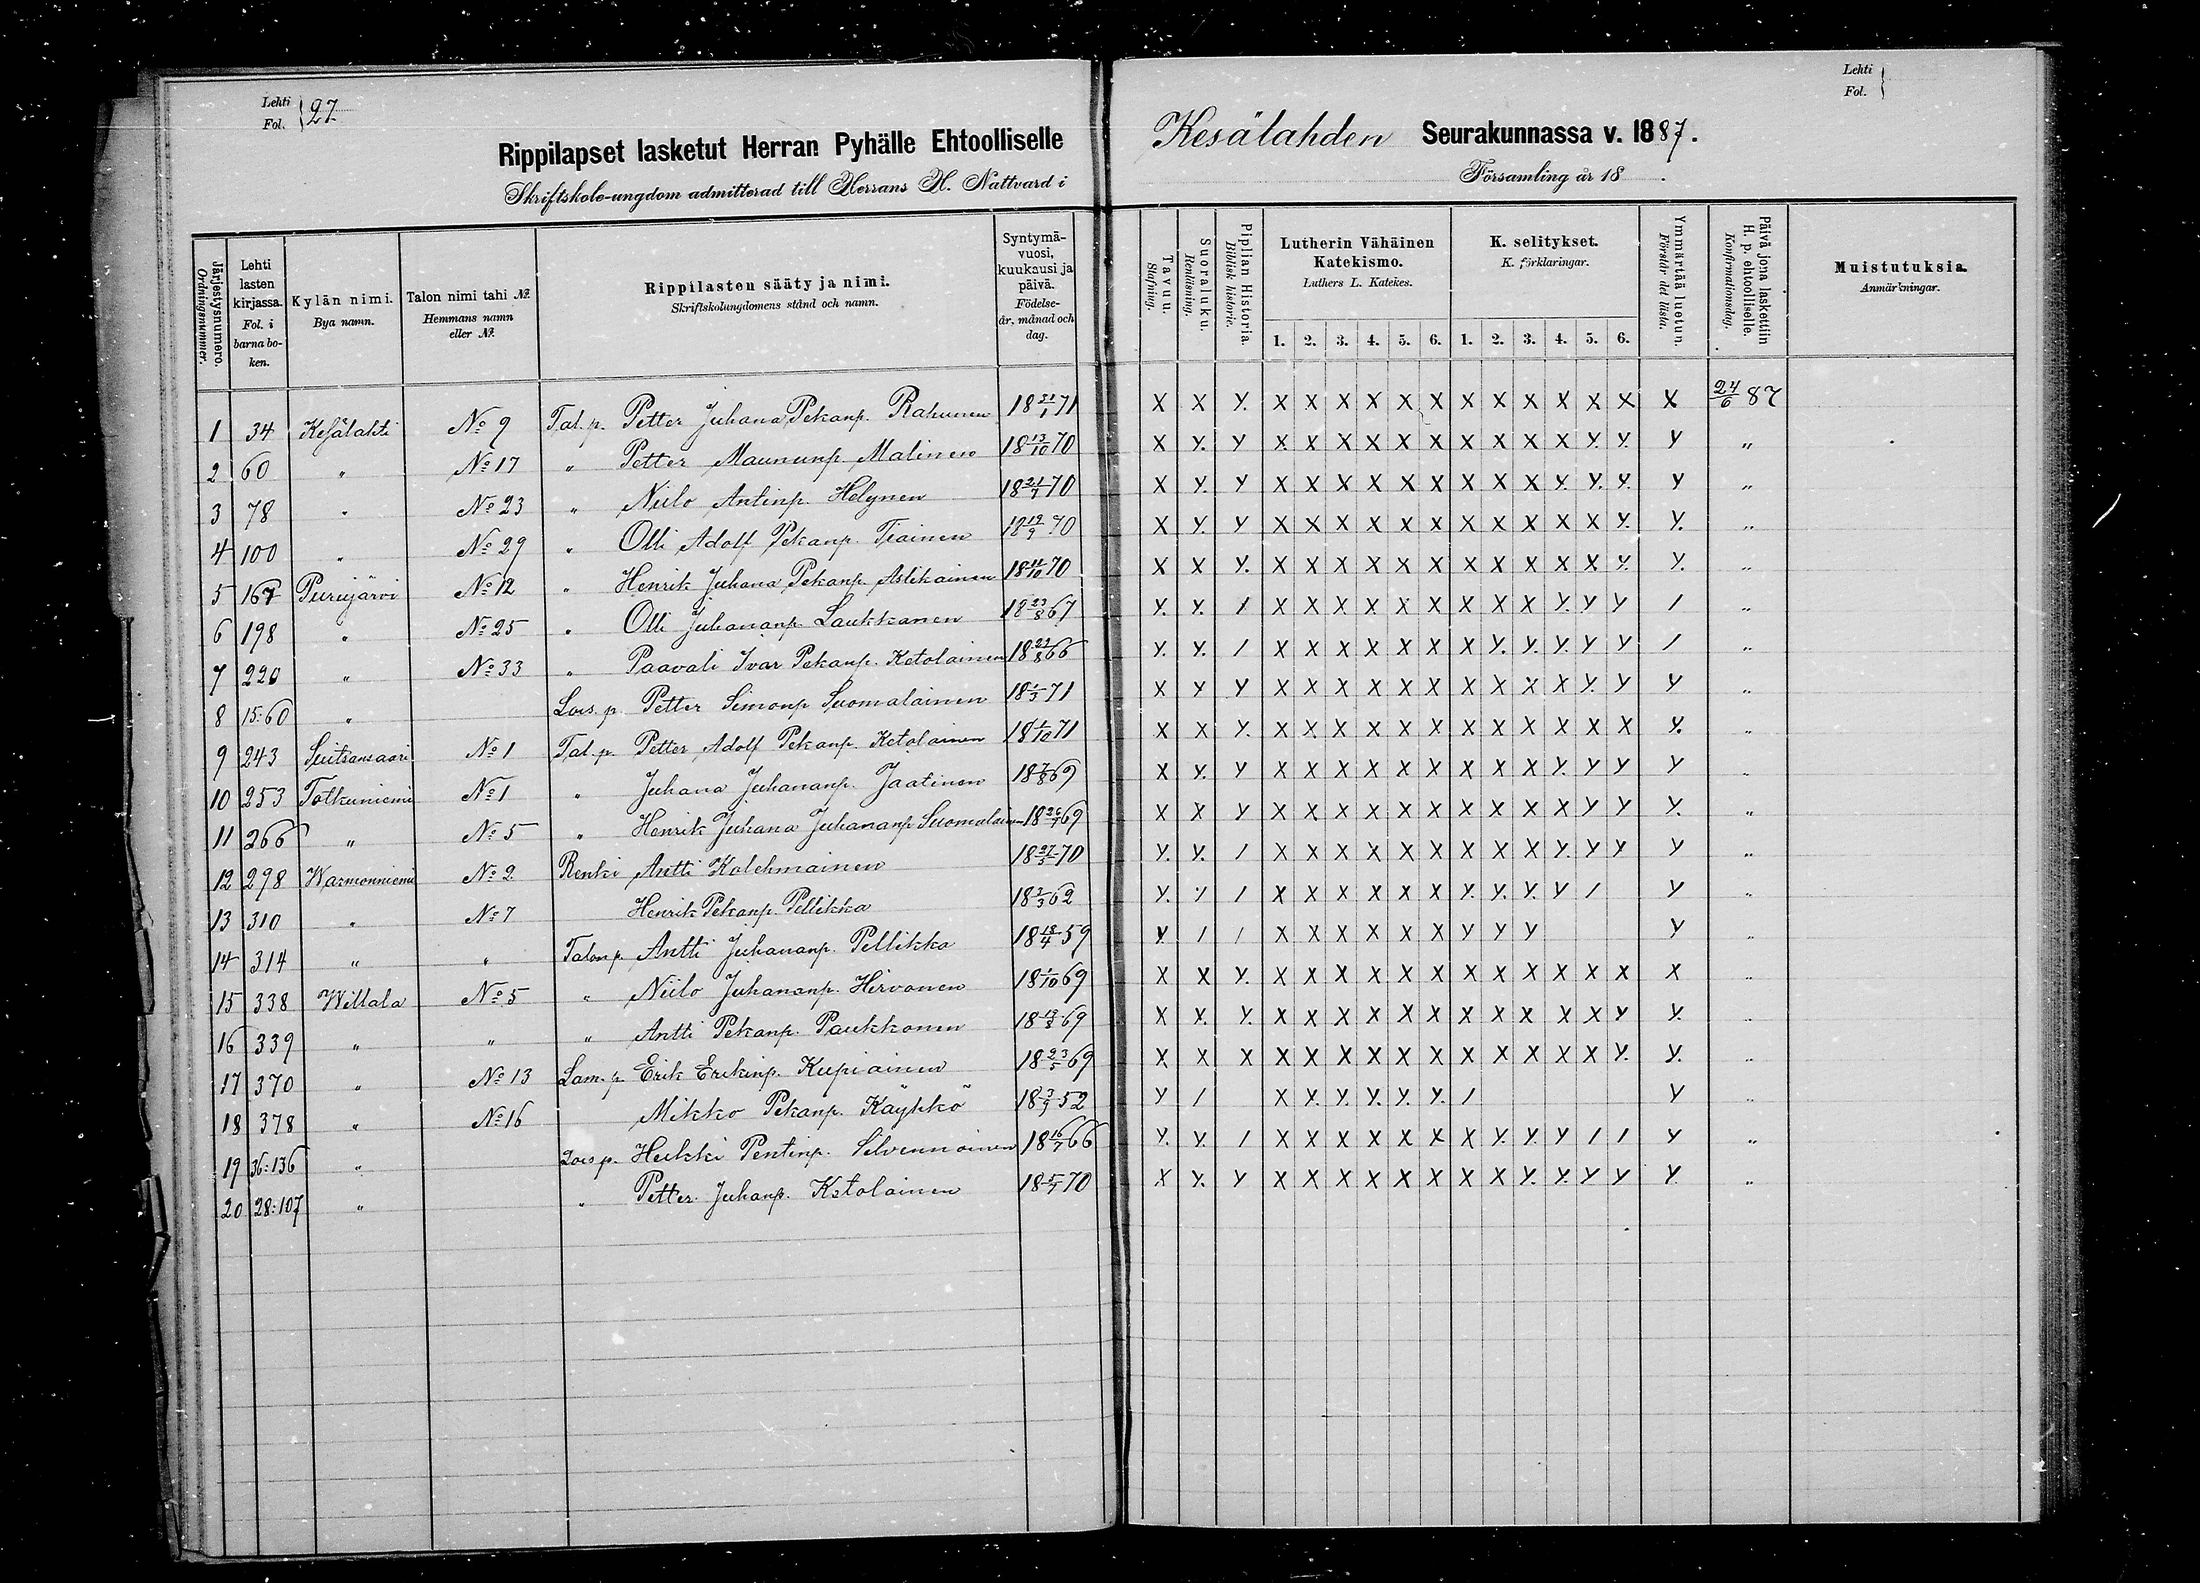 Lehti
Fol. 27.
Rippilapset lasketut Herran Pyhälle Ehtoolliselle
Skriftskole-ungdom admitterad till Herrans H. Nattvard i
Lehti
Fol.
Kesälahden Seurakunnassa v. 1887.
Församling år 18 .
Järjestysnumero. Ordningsnummer.
Lehti lasten kirjassa. Fol. i barna boken.
Kylän nimi. Bya namn.
Talon nimi tahi №. Hemmans namn eller №.
Rippilasten sääty ja nimi. Skriftskolungdomens stånd och namn.
Syntymä-vuosi, kuukausi ja päivä. Födelse-år, månad och dag.
Tavuu. Stafning.
Suoraluku. Renläsning.
Piplian Historia. Biblisk historie.
Lutherin Vähäinen Katekismo. Luthers L. Katekes.
1. 2. 3. 4. 5. 6.
K. selitykset. K. förklaringar.
1. 2. 3. 4. 5. 6.
Ymmärtää luetun. Förstår det lästa.
Päivä jona laskettiin H. p. ehtoolliselle. Konfirmationsdag.
Muistutuksia. Anmärkningar.
1 34 Kesälahti № 9 Tal. p. Petter Juhana Pekanp. Rahunen 18 21/1 71 X X Y. X X X X X X X X X X X X X 24/6 87
2 60 " № 17 " Petter Maununp. Malinen 18 13/10 70 X Y. Y X X X X X X X X X X Y. Y. Y "
3 78 " № 23 " Niilo Antinp. Holynen 70 X Y. Y X X X X X X X X X Y. Y. Y. Y "
4 100 " № 29 " Olli Adolf Pekanp. Tiainen 18 19/9 70 X Y. Y X X X X X X X X X X X Y. Y. "
5 167 Purujärvi № 12 " Henrik Juhana Pekanp. Asikainen 18 11/10 70 X X Y. X X X X X X X X X X X Y. Y. "
6 198 " № 25 " Olli Juhananp. Laukkanen 18 23/8 67 Y. Y. / X X X X X X X X X Y. Y Y / "
7 220 " № 33 " Paavali Ivar Pekanp. Ketolainen 18 22/8 66 Y. Y. / X X X X X X X Y. Y. Y. Y Y / "
8 15:60 " Lois. p. Petter Simonp. Suomalainen 18 1/3 71 X Y Y X X X X X X X X X X Y. Y Y "
9 243 Suitsansaari № 1 Tal. p. Petter Adolf Pekanp. Ketolainen 18 1/10 71 X X Y. X X X X X X X X X X X X Y. "
10 253 Totkuniemi № 1 " Juhana Juhananp. Jaatinen 18 7/8 69 X Y. Y X X X X X X X X X Y. Y Y Y "
11 266 " № 5 " Henrik Juhana Juhananp. Suomalainen 69 X X Y X X X X X X X X X X Y Y Y. "
12 298 Warmonniemi № 2 Renki Antti Kolehmainen 18 27/5 70 Y. Y. / X X X X X X X X X Y. Y Y Y "
13 310 " № 7 Henrik Pekanp. Pellikka 18 2/3 62 Y. / / X X X X X X Y. Y. Y. Y / Y "
14 314 " " Talon p. Antti Juhananp. Pellikka 18 18/4 59 Y / / X X X X X X Y Y Y Y "
15 338 Willala № 5 " Niilo Juhananp. Hirvonen 18 1/10 69 X X Y. X X X X X X X X X X X X X "
16 339 " " " Antti Pekanp. Paukkonen 69 X Y. Y. X X X X X X X X X X X Y Y. "
17 370 " № 13 Lam. p. Erik Erikinp. Kupiainen 18 23/5 69 X X X X X X X X X X X X X X Y. Y. "
18 378 " № 16 Mikko Pekanp. Käyhkö 18 3/9 52 Y / X Y. Y. Y. Y. Y. / Y "
19 36:136 " Lois p. Heikki Pentinp. Silvennoinen 18 16/7 66 Y. Y. / X X X X X X X Y. Y. Y / / Y "
20 28:107 " " Petter Juhanp. Ketolainen 70 X Y. Y X X X X X X X X Y. Y. Y Y Y. "